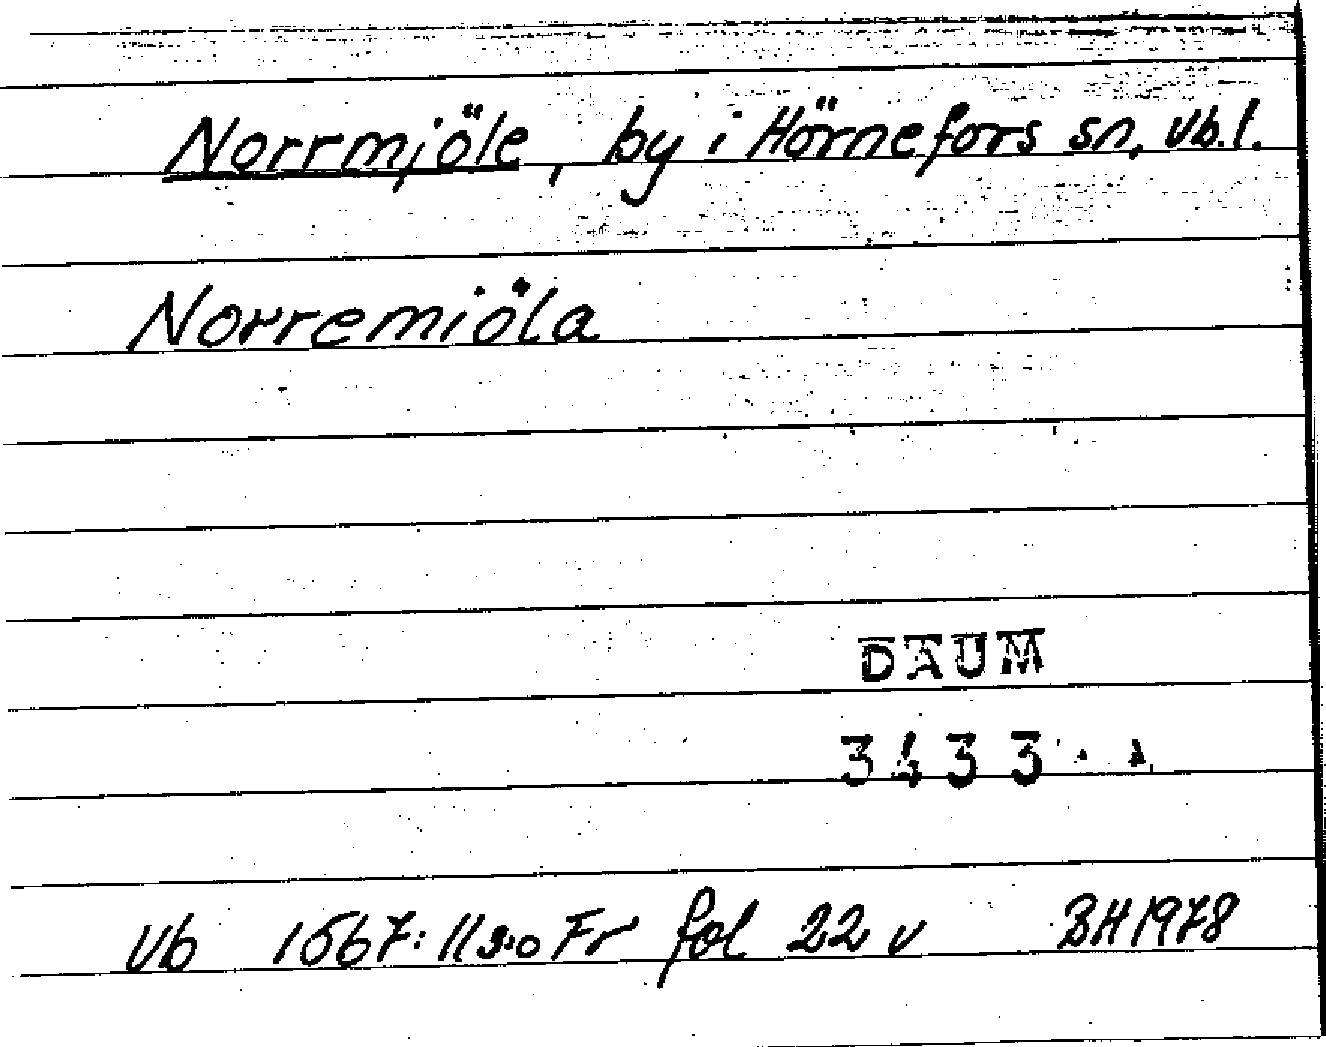 Norrmjöle, by i Hörnefors sn, vb.l.
Norremiöla
DAUM
3433
Vb 1567: 11 s:o Fr fol 22 v BH 1978